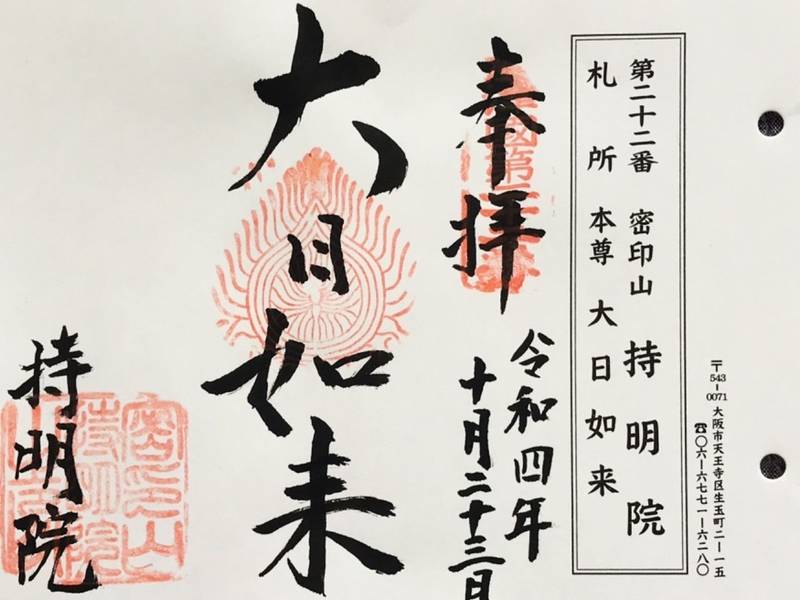 〒543-0071 大阪市天王寺区生玉町二ー一五
☎〇六ー六七七一ー六二八〇
第二十二番 密印山 持明院
札所本尊 大日如来
奉拝
令和四年
十月二十三日
大日如来
持明院
密印山
持明院